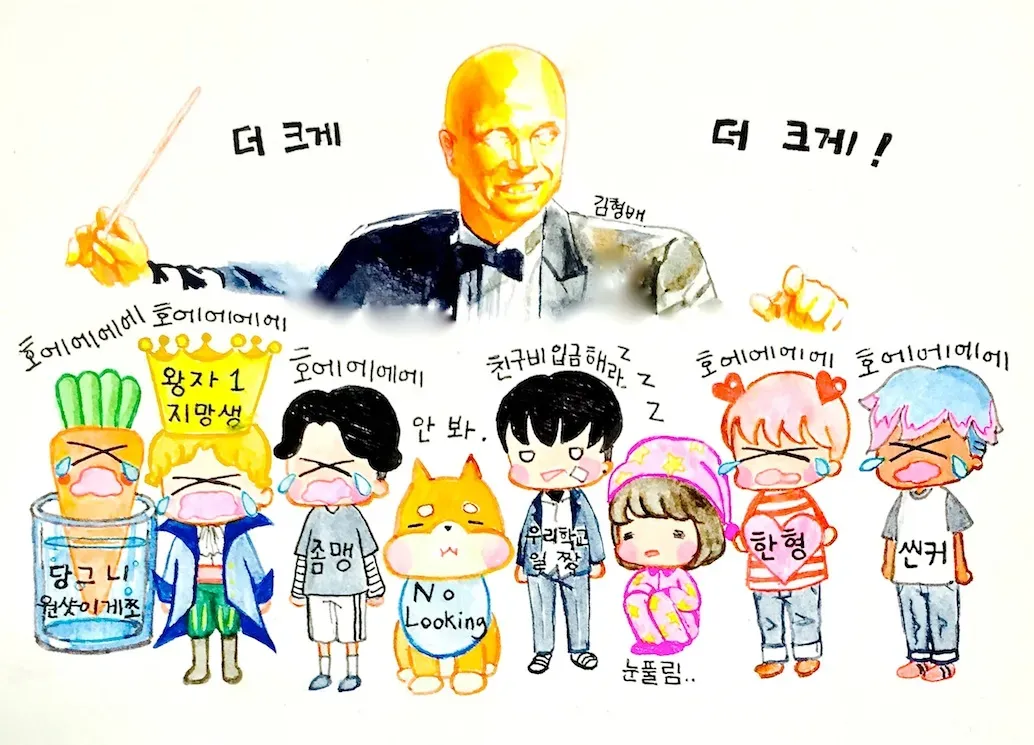 더 크게
더 크게!
김형배
호에에에에
호에에에에
호에에에에
안 봐.
친구비 입금해라.
z
z
z
호에에에에
호에에에에
왕자 1
지망생
당그니
원샷이게쪄
좀맹
No
Looking
우리학교
일짱
눈풀림..
한형
씬커